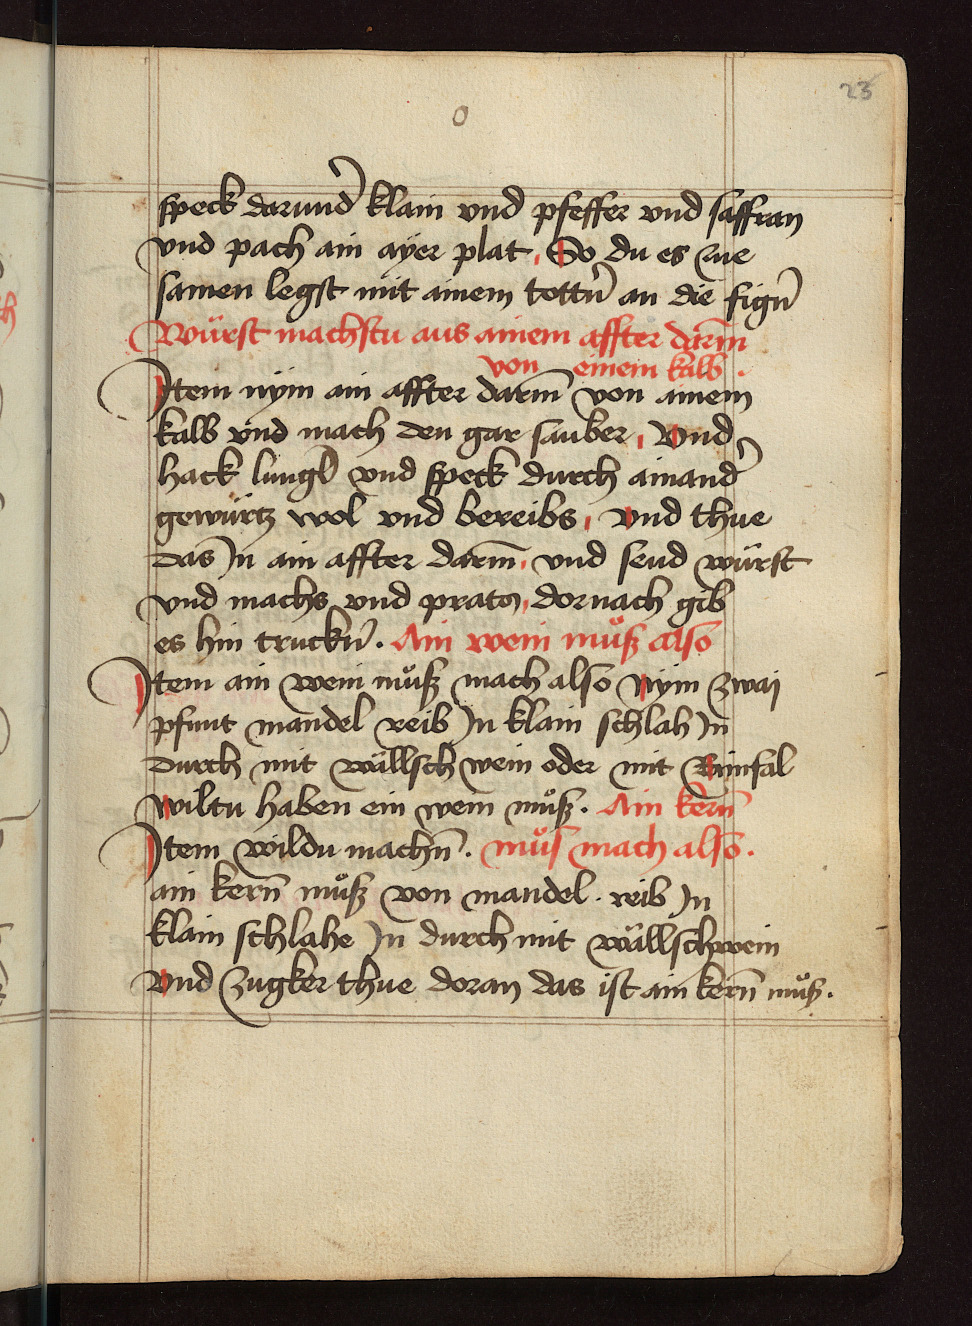 23
speck darund̄ klain vnd pfeffer vnd saffran
vnd pach ain ayer plat, So du es zue
samen legst mit ainem tottn̄ an die fign̄
Würst machstu aus ainem affter darm̄
von einem kalb.
Item nym ain affter darm̄ von ainem
kalb vnd mach den gar sauber, Vnd
hack lungl vnd speck durch ainand̄
gewürtz wol vnd bereibs, vnd thue
das In ain affter darm̄, vnd send würst
vnd machs vnd pratns, dornach gib
es hin truckn̄. Ain wein muͦß also
Item ain wein muͦß mach also nym zwai
pfunt mandel reib In klain schlah In
durch mit wällsch wein oder mit Rainfal
wiltu haben ein wein muͦß. Ain kern̄
Item wildu machn̄. muͦs mach also.
ain kern̄ muͦß von mandel. reib In
klain schlahe In durch mit wällschwein
vnd zugker thue doran das ist ain kern̄ muͦß.